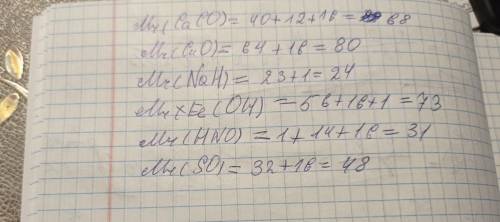 Mr(CaCO) = 40+12+16 = 68
Mr(CuO) = 64+16 = 80
Mr(NaH) = 23+1 = 24
Fe(OH) = 56+16+1 = 73
Mr(HNO) = 1+14+16 = 31
Mr(SO) = 32+16 = 48